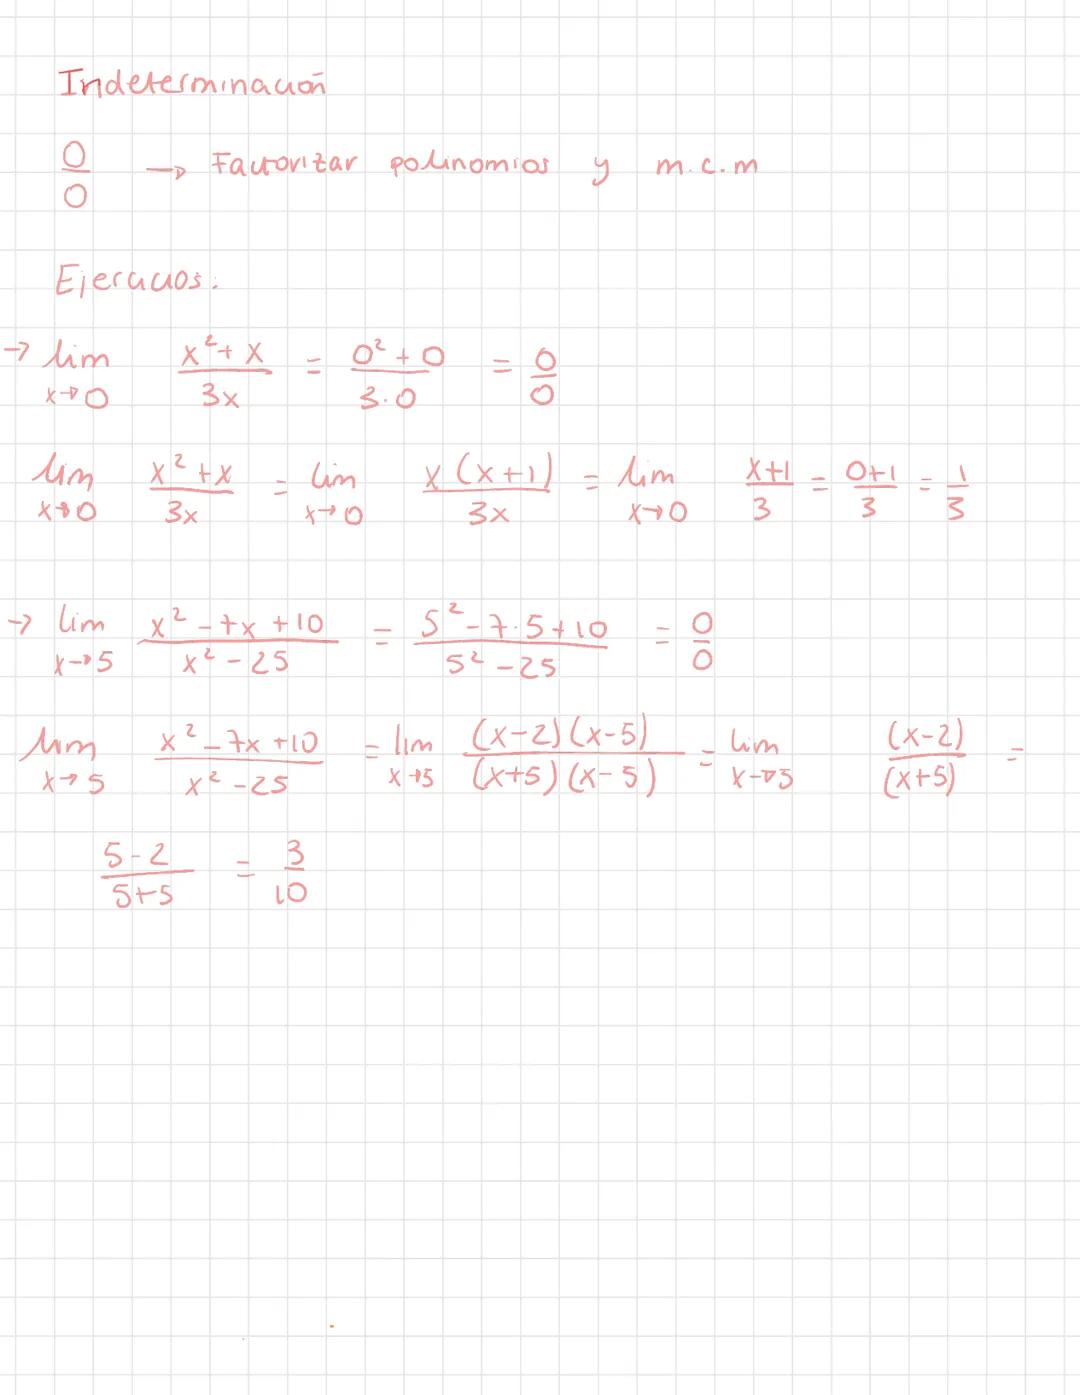 Indeterminación
0/0 → Factorizar polinomios y m.c.m
Ejercicios:
→ lim x→0 (x²+x)/(3x) = (0²+0)/(3·0) = 0/0
lim x→0 (x²+x)/(3x) = lim x→0 x(x+1)/(3x) = lim x→0 (x+1)/3 = (0+1)/3 = 1/3
→ lim x→5 (x²-7x+10)/(x²-25) = (5²-7·5+10)/(5²-25) = 0/0
lim x→5 (x²-7x+10)/(x²-25) = lim x→5 (x-2)(x-5)/(x+5)(x-5) = lim x→5 (x-2)/(x+5) =
(5-2)/(5+5) = 3/10